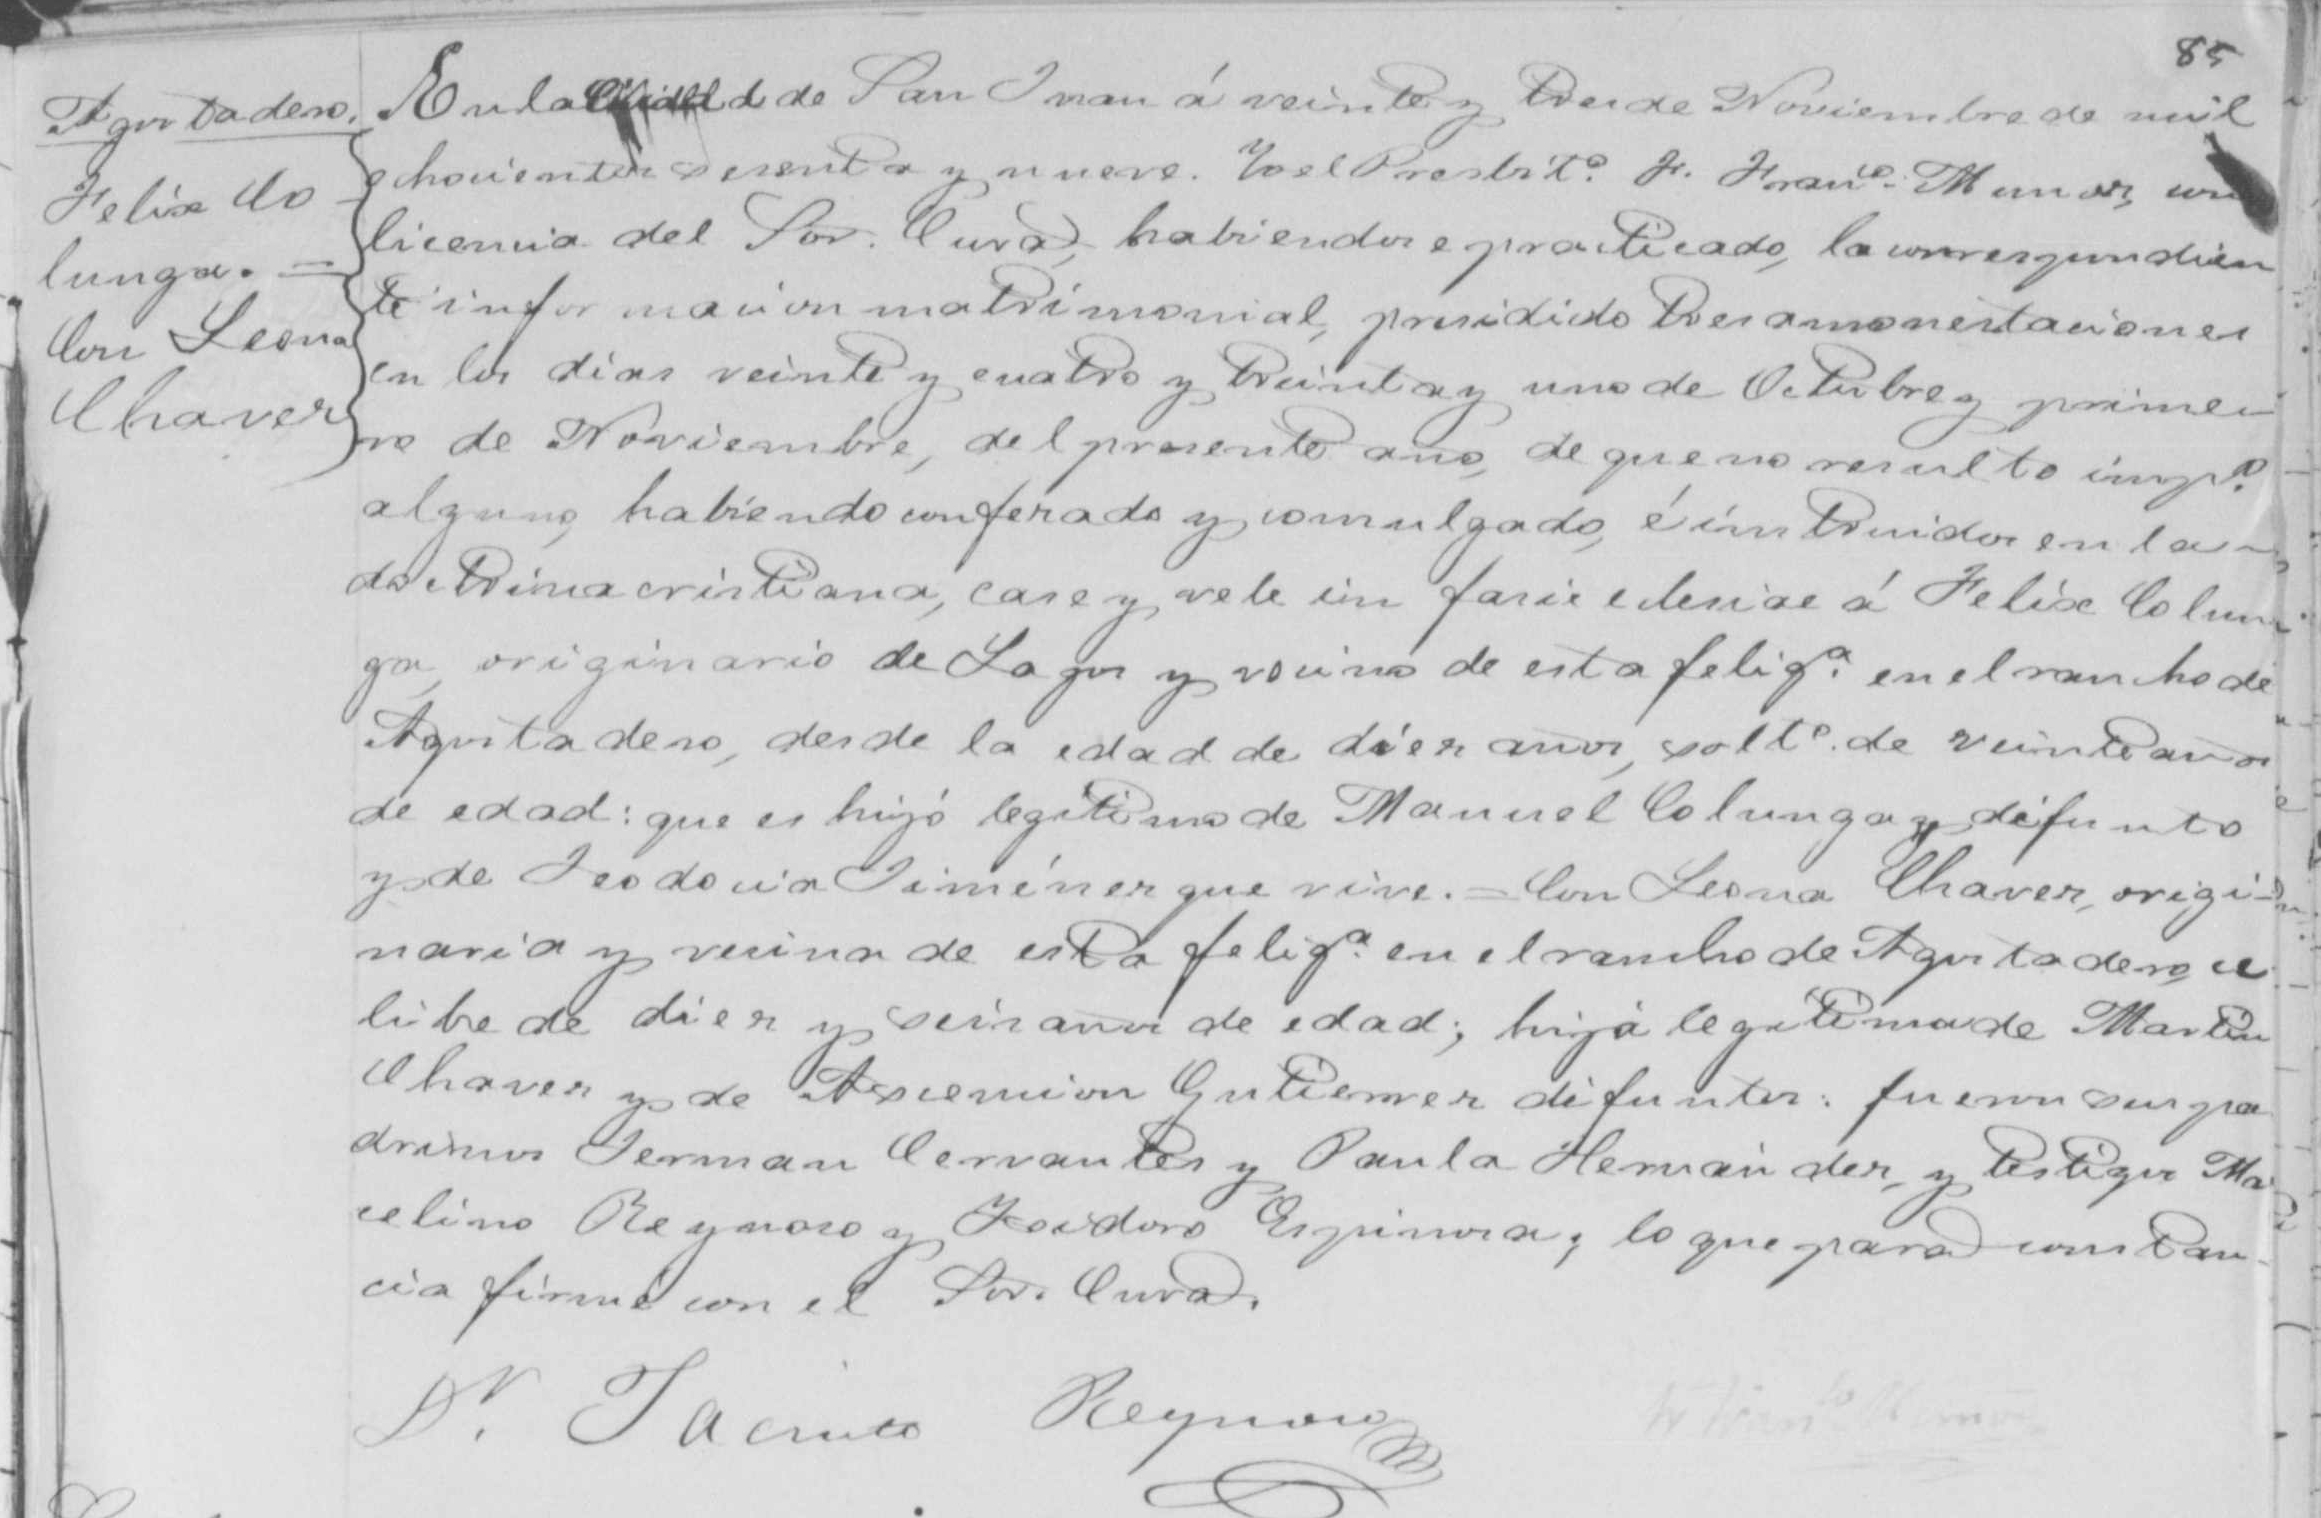 85
Agostadero.
Felix Co
lunga. =
Con Leona
Chavez
En la Ciudad de San Juan á veinte y tres de Noviembre de mil
ochocientos sesenta y nueve. Yo el Presbit.º F. Franco. Munoz, con
licencia del Sor. Cura, habiendose practicado, la correspondien
te informacion matrimonial, presidido tres amonestaciones
en los dias veinte y cuatro y treinta y uno de Octubre y prime-
ro de Noviembre, del presente ano, de que no resulto imp.º
alguno, habiendo confesado y comulgado, é instruidos en la
doctrina cristiana, case y vele in facie eclesiae á Felix Colun-
ga, originario de Lagos y vecino de esta felig.ª en el rancho de
Agostadero, desde la edad de diez anos, solt.º de veinte anos
de edad: que es hijo legitimo de Manuel Colunga y difunto
y de Teodocia Jiménez que vive. = Con Leona Chavez, origi-
naria y vecina de esta felig.ª en el rancho de Agostadero, ce
libe de diez y seis anos de edad; hija legitima de Martin
Chavez y de Ascencion Gutierrez difuntos: fueron sus pa
drinos German Cervantes y Paula Hernández, y testigos Ma
celino Reynoso y Isidoro Espinosa; lo que para constan-
cia firmé con el Sor. Cura.
Dr. Jacinto Reynoso